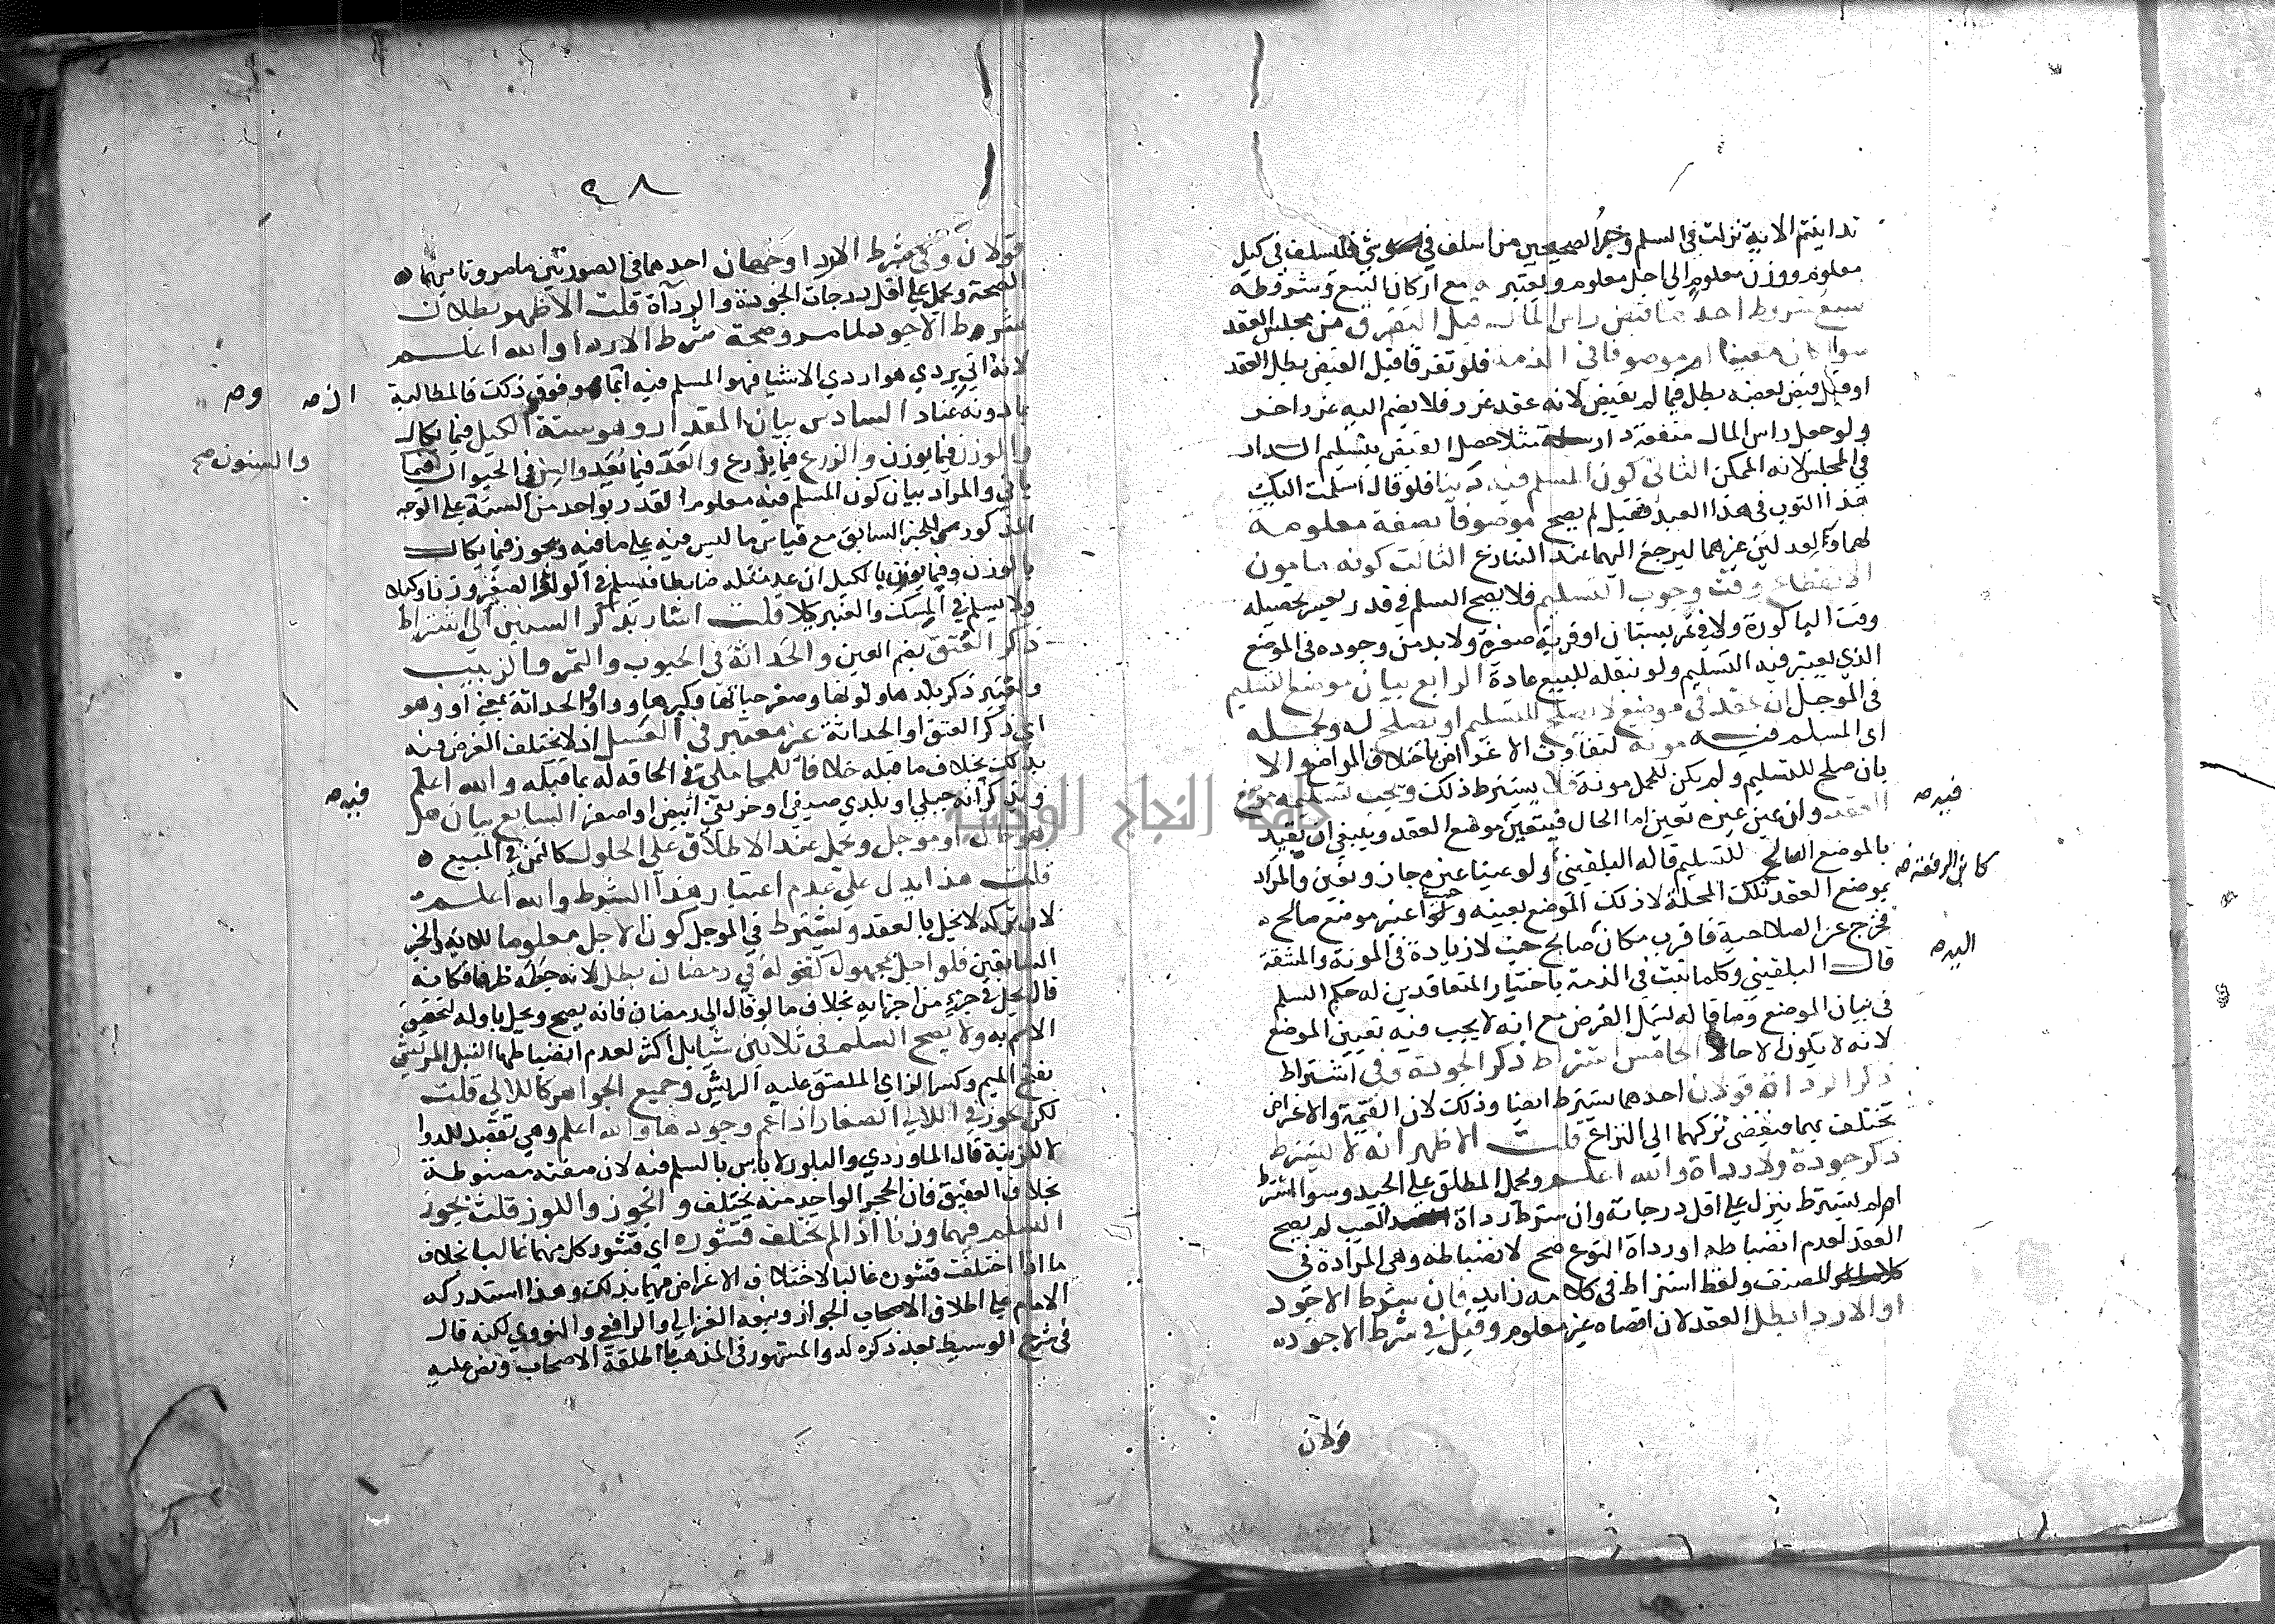 تداينتم الاية نزلت في السلم وخبر الصحيحين من اسلف في شي فليسلف في كيل
معلوم ووزن معلوم الي اجل معلوم ويعتبر مع اركان البيع وشروطه
سبع شروط احدها قبض راس المال قبل التفرق من مجلس العقد
سوا كان معينا ام موصوفا في الذمة فلو تفرقا قبل القبض بطل العقد
او قبل قبض بعضه بطل فيما لم يقبض لانه عقد غرر فلا يضم اليه غرر اخر
ولو جعل راس المال منفعة دار مثلا حصل القبض بتسليم الدار
في المجلس لانه الممكن الثاني كون المسلم فيه دينا فلو قال اسلمت اليك
هذا الثوب في هذا العبد فقبل لم يصح موصوفا بصفة معلومة
لهما ولعدلين غيرهما ليرجع اليهما عند التنازع الثالث كونه مامون
الانقطاع وقت وجوب التسليم فلا يصح السلم في قدر يعسر تحصيله
وقت الباكورة ولا في ثمر بستان او قرية صغيرة ولا بد من وجوده في الموضع
الذي يعتبر فيه التسليم ولو بنقله للبيع عادة الرابع بيان موضع التسليم
في الموجل ان عقد في موضع لا يصلح للتسليم او يصلح له ولحمله
اي المسلم فيه مونة لتفاوت الاغراض باختلاف المواضع والا
بان صلح للتسليم ولم يكن للحمل مونة فلا يشترط ذلك ويجب تسليمه موضع
العقد وان عين غيره تعين اما الحال فيتعين موضع العقد وينبغي ان يقيد
بالموضع الصالح للتسليم قاله البلقيني ولو عينا غيره جاز وتعين والمراد
بموضع العقد تلك المحلة لا ذلك الموضع بعينه ولو اعتبر موضع صالح
فخرج عن الصلاحية فاقرب مكان صالح حيث لا زيادة في المونة والمشقة
قال البلقيني وكلما ثبت في الذمة باختيار المتعاقدين له حكم السلم
في بيان الموضع وما قاله يشمل القرض مع انه لا يجب فيه تعيين الموضع
لانه لا يكون الا حالا الخامس اشتراط ذكر الجودة وفي اشتراط
ذكر الرداة قولان احدهما يشترط ايضا وذلك لان القيمة والاغراض
تختلف بهما فيفضي تركهما الي النزاع قلت الاظهر انه لا يشترط
ذكر جودة ولا رداة والله اعلم ويحمل المطلق علي الجيد وسوا اشترط
ام لم يشترط ينزل علي اقل درجاته وان شرط رداة العيب لم يصح
العقد لعدم انضباطه او رداة النوع صح لانضباطه وهي المرادة في
كلام المصنف ولفظ اشتراط في كلامه زايد فان شرط الاجود
او الاردا بطل العقد لان اقصاه غير معلوم وقيل في شرط الاجود
قولان
فيه صح
كما في الروضة صح
اليه صح
٤٨
قولان وفي شرط الاردا وجهان احدهما في الصورتين ما مر وثانيهما
الصحة ويحمل علي اقل درجات الجودة والرداة قلت الاظهر بطلان
شرط الاجود لما مر وصحة شرط الاردا والله اعلم
لانه ان يردي هو اردي الاشيا فهو المسلم فيه او هو فوق ذلك فالمطالبة
بما دونه عناد السادس بيان المقدار وهو ستة الكيل فيما يكال
والوزن فيما يوزن والذرع فيما يذرع والعد فيما يعد والسن في الحيوان
ياتي والمراد بيان كون المسلم فيه معلوم القدر بواحد من الستة علي الوجه
المذكور للخبر السابق مع قياس ما ليس فيه علي ما فيه ويجوز فيما يكال
بالوزن وفيما يوزن بالكيل ان عد مثله ضابطا فيسلم في اللولو الصغير وزنا وكيلا
ولا يسلم في المسك والعنبر كيلا قلت اشار بذكر السنين الي اشتراط
ذكر العتق بضم العين والحداثة في الحبوب والتمر والزبيب
ويعتبر ذكر بلدها ولونها وصغر حباتها وكبرها وواو والحداثة بمعني او وهو
اي ذكر العتق او الحداثة غير معتبر في العسل اذ لا يختلف الغرض فيه
بذلك بخلاف ما قبله خلافا للماملي في الحاقه له بما قبله والله اعلم
ويذكر انه جبلي او بلدي صيفي او خريفي ابيض او اصفر السابع بيان هل
هو حال او موجل ويحمل عند الاطلاق علي الحلول كالثمن في المبيع
قلت هذا يدل علي عدم اعتبار هذا الشرط والله اعلم
لان تركه لا يخل بالعقد ويشترط في الموجل كون الاجل معلوما للاية والخبر
السابقين فلو اجل بمجهول كقوله في رمضان بطل لانه جعله ظرفا فكانه
قال يحل في جزء من اجزايه بخلاف ما لو قال الي رمضان فانه يصح ويحل باوله لتحقق
الاسم به ولا يصح السلم في ثلاثين شيا بل اكثر لعدم انضباطها النبل المريش
بفتح الميم وكسر الراي الملصق عليه الريش وجميع الجواهر كاللالي قلت
لكن يجوز في اللالي الصغار اذا عم وجودها والله اعلم وهي تقصد للدوا
لا للزينة قال الماوردي والبلور لا باس بالسلم فيه لان صفته مضبوطة
بخلاف العقيق فان الحجر الواحد منه يختلف و الجوز واللوز قلت يجوز
السلم فيهما وزنا اذا لم يختلف قشوره اي قشور كل منهما غالبا بخلاف
ما اذا اختلفت قشوره غالبا لاختلاف الاغراض فيهما بذلك وهذا استدركه
الامام علي اطلاق الاصحاب الجواز وتبعه الغزالي والرافعي والنووي لكنه قال
في شرح الوسيط بعد ذكره له والمشهور في المذهب ما اطلقه الاصحاب ونص عليه
والسنون صح
فيه صح